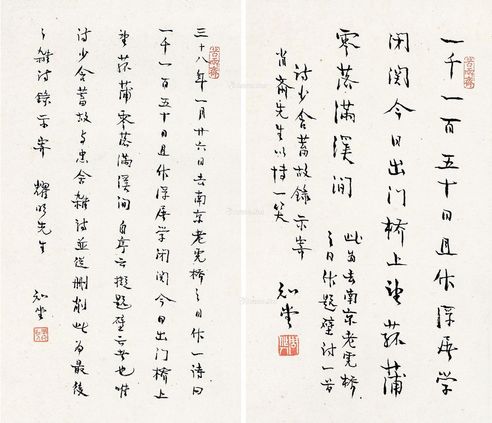 一千一百五十日且作浮屠学
闭关今日出门桥上望菰蒲
零落满溪间
此为去南京老虎桥
之日作题壁诗一首
诗少含蓄故录示寄
先生以博一笑
知堂
三十八年一月廿六日去南京老虎桥之日作一诗曰
一千一百五十日且作浮屠学闭关今日出门桥上
望菰蒲零落满溪间自序云拟题壁云者也唯
诗少含蓄故与忠舍杂诗並從删削此为最後
之杂诗录示寄 耀明先生
知堂